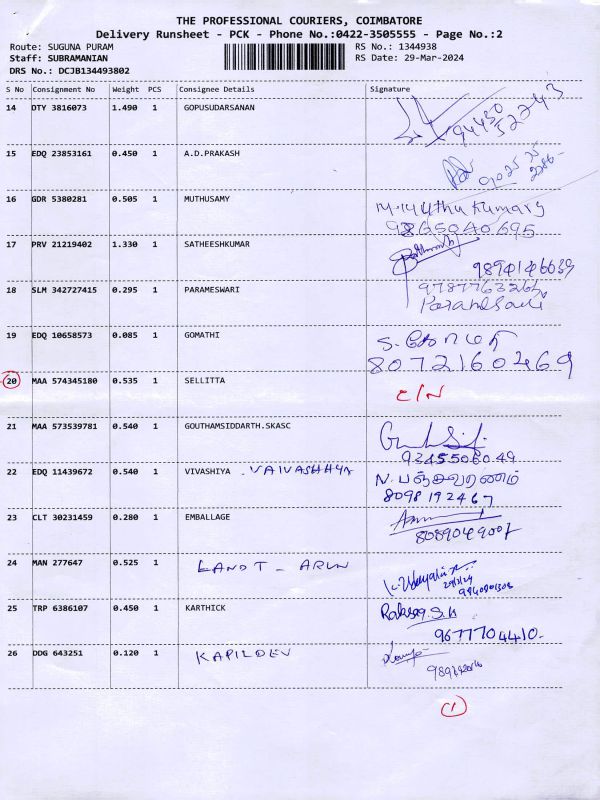 THE PROFESSIONAL COURIERS, COIMBATORE
Delivery Runsheet - PCK - Phone No.:0422-3505555 - Page No.:2
Route: SUGUNA PURAM RS No.: 1344938
Staff: SUBRAMANIAN RS Date: 29-Mar-2024
DRS No.: DCJB134493802
S No Consignment No Weight PCS Consignee Details Signature
14 DTY 3816073 1.490 1 GOPUSUDARSANAN
15 EDQ 23853161 0.450 1 A.D.PRAKASH
16 GDR 5380281 0.505 1 MUTHUSAMY
9865040695
17 PRV 21219402 1.330 1 SATHEESHKUMAR
18 SLM 342727415 0.295 1 PARAMESWARI
9787763263
19 EDQ 10658573 0.085 1 GOMATHI S. கோமதி
8072160469
20 MAA 574345180 0.535 1 SELLITTA C/N
21 MAA 573539781 0.540 1 GOUTHAMSIDDARTH.SKASC
22 EDQ 11439672 0.540 1 VIVASHIYA . VAIVASHHYA N. பஞ்சவரணம்
8098192467
23 CLT 30231459 0.280 1 EMBALLAGE
24 MAN 277647 0.525 1 LANDT - ARUN
25 TRP 6386107 0.450 1 KARTHICK
9677704410.
26 DDG 643251 0.120 1 KAPILDEV
1